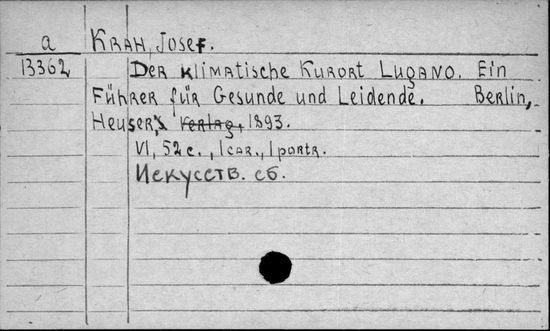 a Krah, Josef.
13362 Der klimatische Kurort Lugano. Ein
Führer für Gesunde und Leidende. Berlin,
Heuser's Verlag, 1893.
VI, 52 c., 1 car., 1 portr.
Искусств. сб.